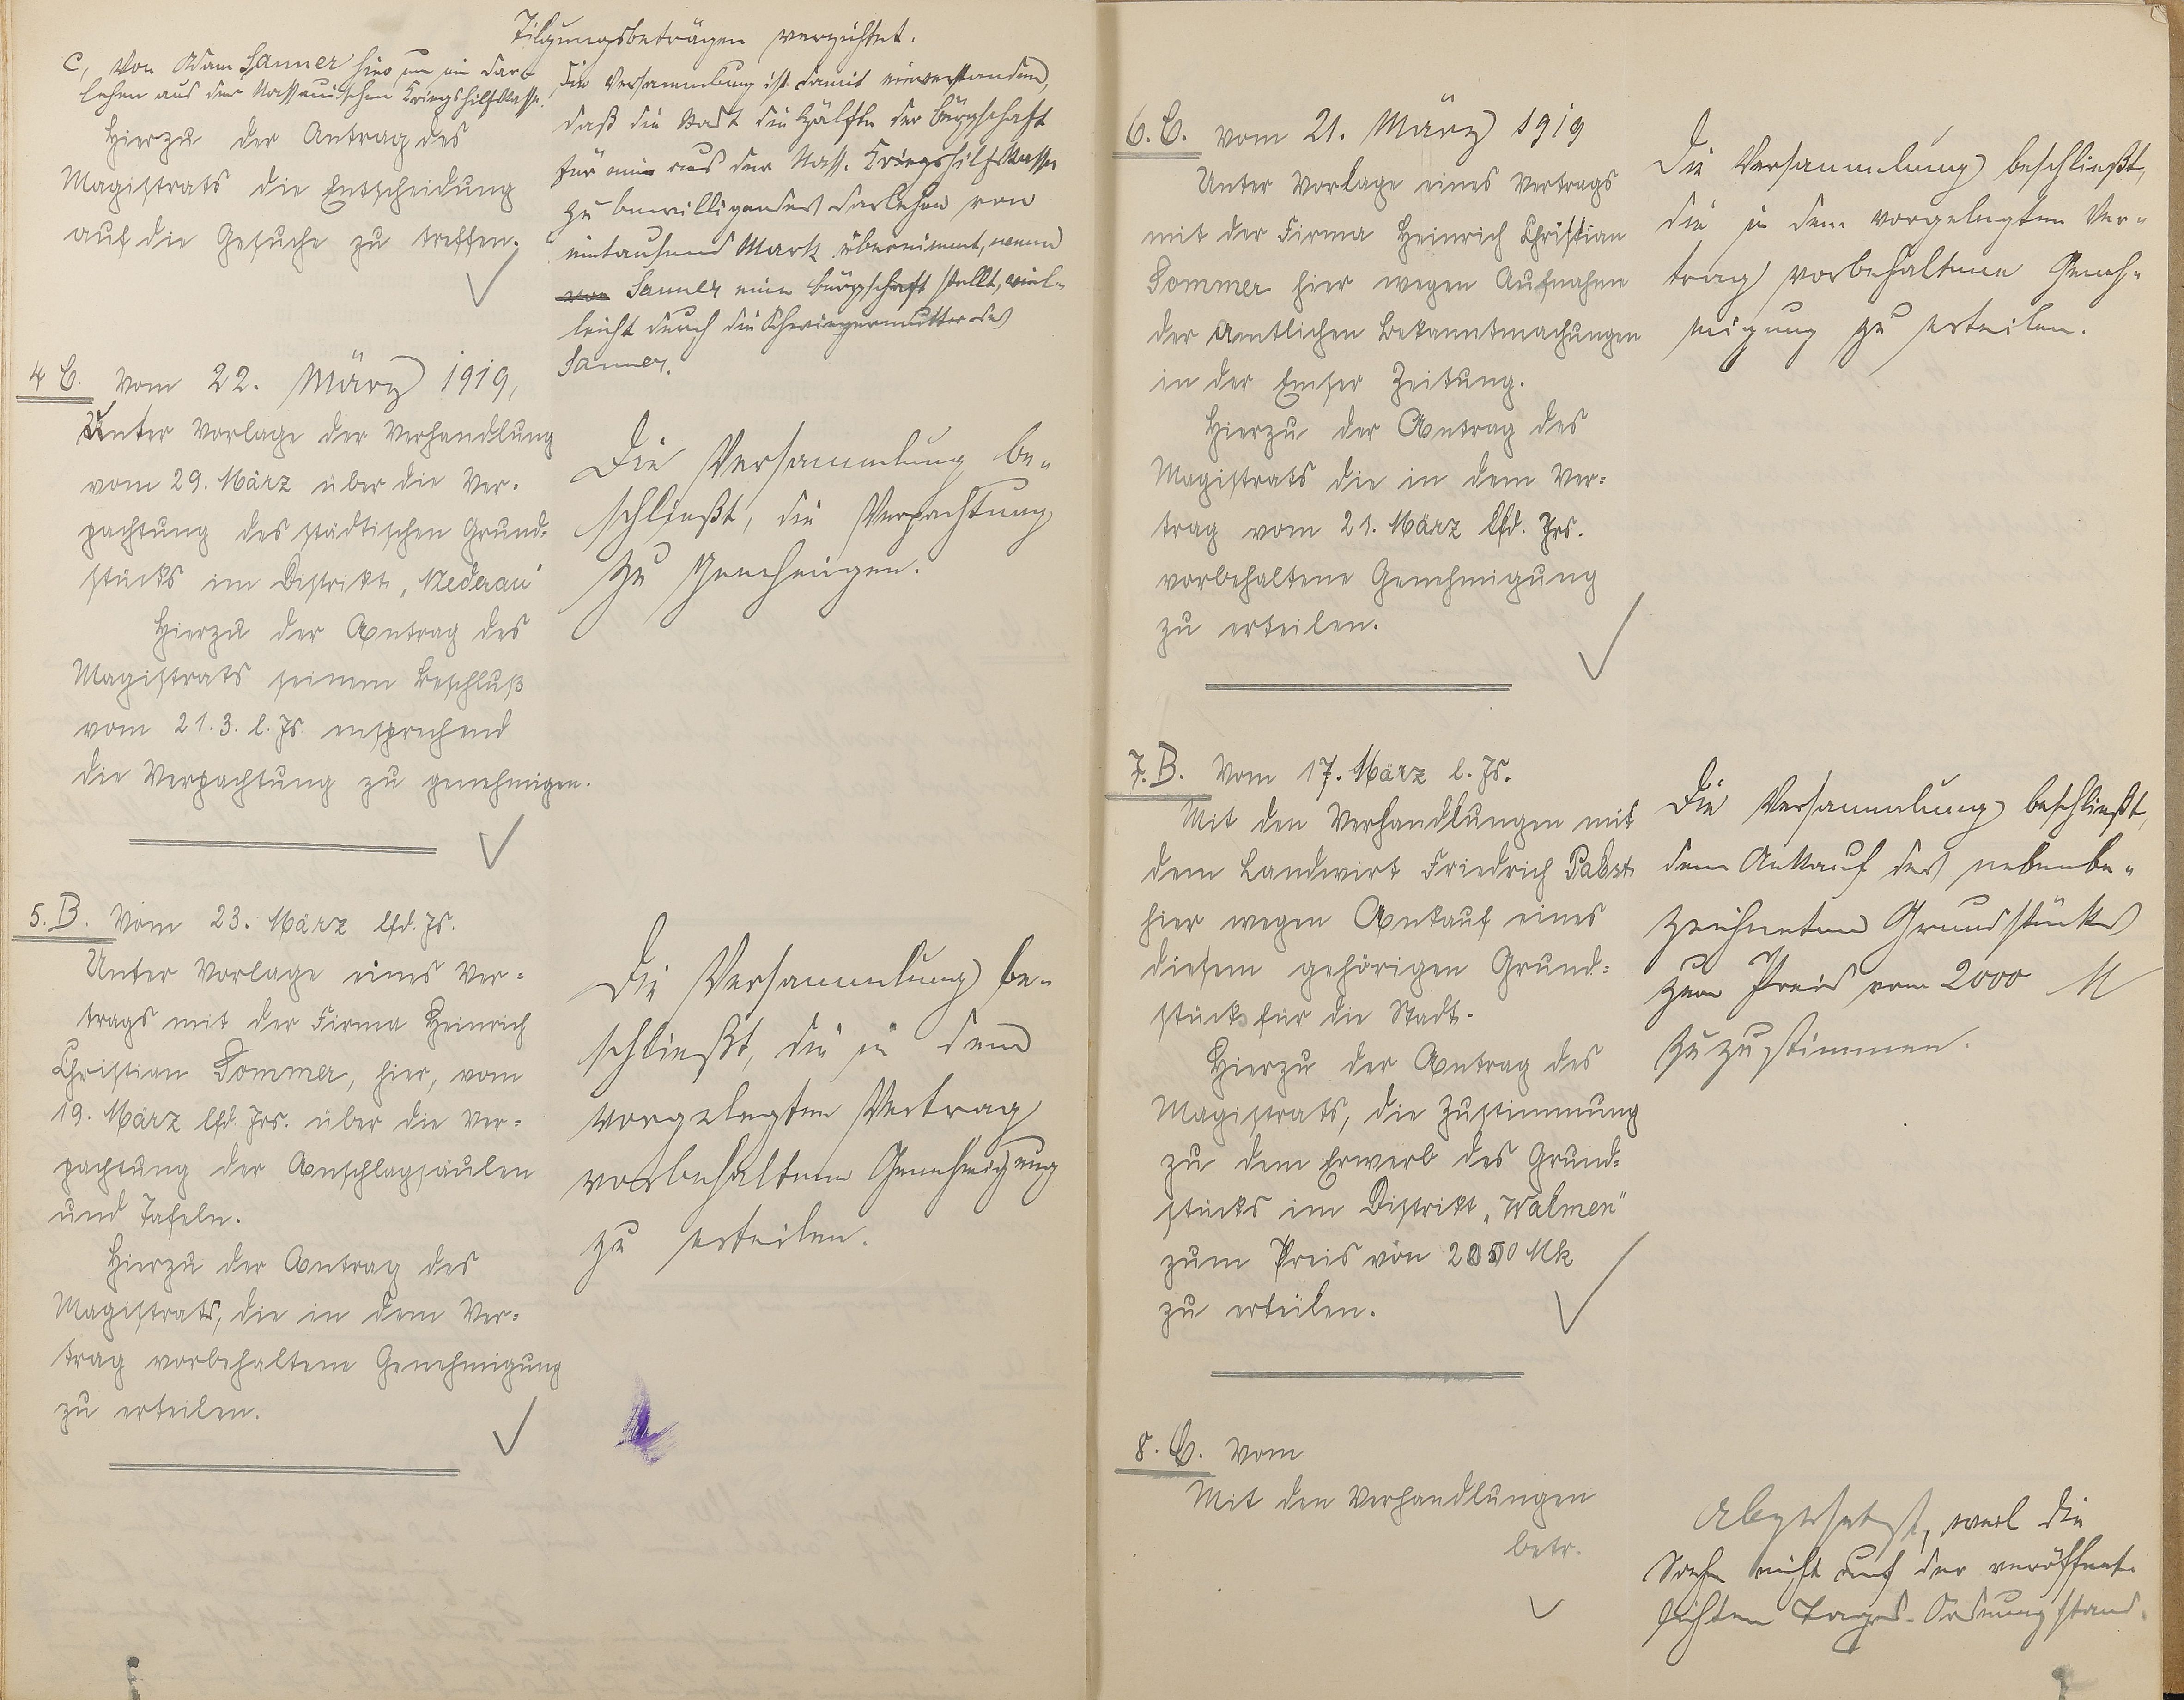 c, Von Adam Sauner hier um ein Dar-
lehen aus der Nassauischen Kriegshilfskasse.
Hierzu der Antrag des
Magistrats die Entscheidung
auf die Gesuche zu treffen.
Tilgungsbeträgen verzichtet.
Die Versammlung ist damit einverstanden,
daß die Stadt die Hälfte der Bürgschaft
für ein aus der Nass. Kriegshilfskasse
zu bewilligendes Darlehen von
eintausend Mark übernimmt, wenn
von Sauner eine Bürgschaft stellt, viel-
leicht durch die Schwiegermutter des
Sauner.
4 B. Vom 22. März 1919,
Unter Vorlage der Verhandlung
vom 29. März über die Ver-
pachtung des städtischen Grund-
stücks im Distrikt „Nederau"
Hierzu der Antrag des
Magistrats seinem Beschluß
vom 21.3. l. Js. ensprechend
die Verpachtung zu genehmigen.
Die Versammlung be-
schließt, die Verpachtung
zu genehmigen.
5. B. Vom 23. März lfd. Js.
Unter Vorlage eines Ver-
trags mit der Firma Heinrich
Christian Sommer, hier, vom
19. März lfd. Jrs. über die Ver-
pachtung der Anschlagsäulen
und Tafeln.
Hierzu der Antrag des
Magistrats, die in dem Ver-
trag vorbehaltene Genehmigung
zu erteilen.
Die Versammlung be-
schließt, die in dem
vorgelegten Vertrag
vorbehaltene Genehmigung
zu erteilen.
6. B. Vom 21. März 1919
Unter Vorlage eines Vertrags
mit der Firma Heinrich Christian
Sommer hier wegen Aufnahme
der Amtlichen Bekanntmachungen
in der Emser Zeitung.
Hierzu der Antrag des
Magistrats die in dem Ver-
trag vom 21. März lfd. Jrs.
vorbehaltene Genehmigung
zu erteilen.
Die Versammlung beschließt,
die in dem vorgelegten Ver-
trag vorbehaltene Geneh-
migung zu erteilen.
7. B. Vom 17. März l. Js.
Mit den Verhandlungen mit
dem Landwirt Friedrich Pabst
hier wegen Ankauf eines
diesem gehörigen Grund-
stücks für die Stadt.
Hierzu der Antrag des
Magistrats, die Zustimmung
zu dem Erwerb des Grund-
stücks im Distrikt „Walmen"
zum Preis von 2000 Mk
zu erteilen.
Die Versammlung beschließt,
dem Ankauf des nebenbe-
zeichneten Grundstücks
zum Preis von 2000 M
zuzustimmen.
8. B. Vom
Mit den Verhandlungen
betr.
Abgesetzt, weil die
Sache nicht auf der veröffent-
lichten Tages-Ordnung stand.